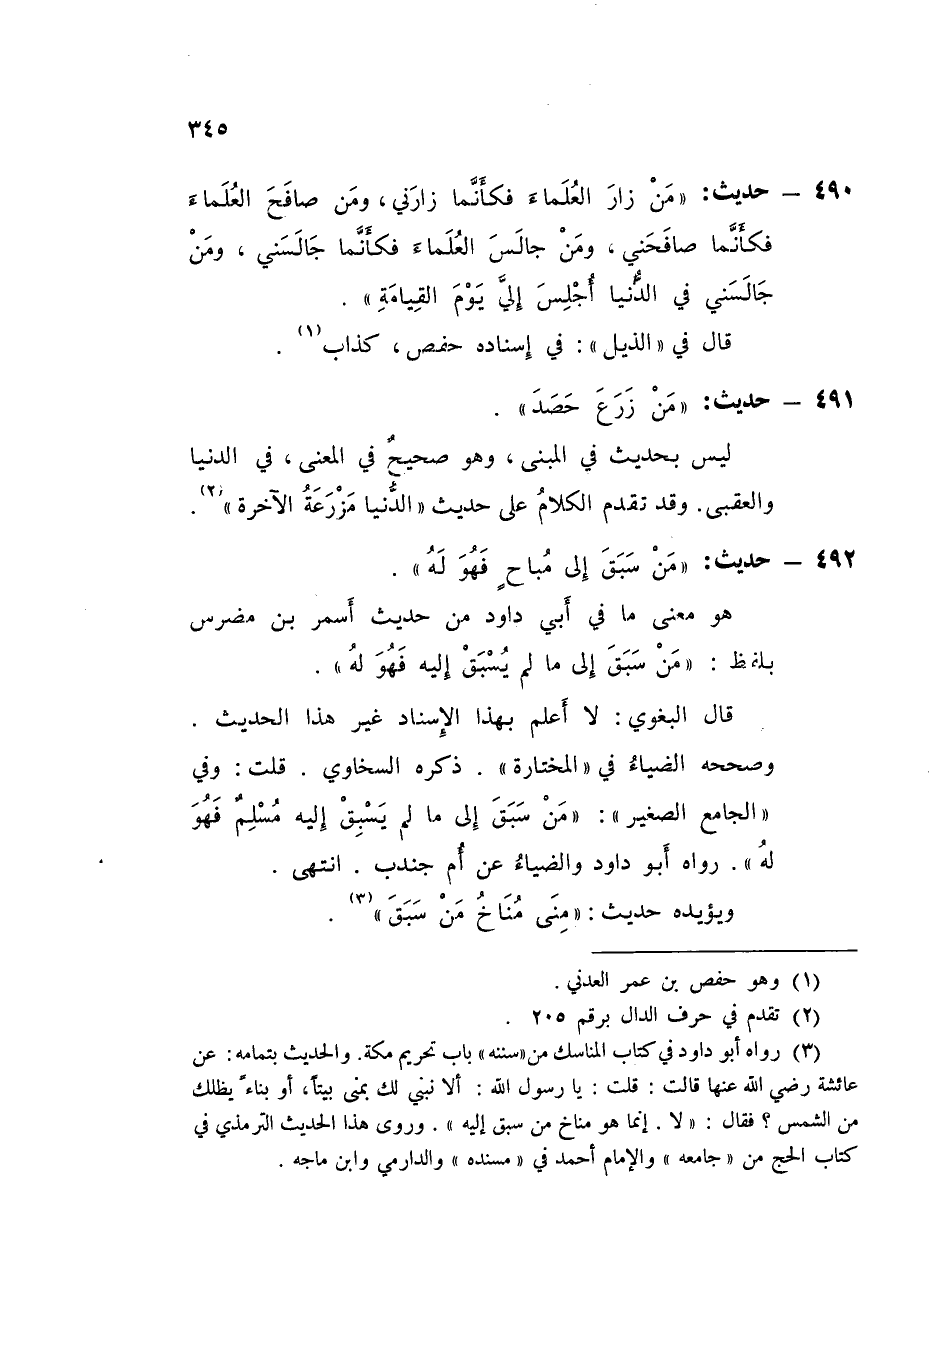 ٣٤٥
٤٩٠ – حديث: «مَنْ زارَ العُلَماءَ فكأَنَّما زارَني، ومَن صافَحَ العُلَماءَ
فكأَنَّما صافَحَني، ومَنْ جالَسَ العُلَماءَ فكأَنَّما جَالَسَني، ومَنْ
جَالَسَني في الدُّنيا أُجْلِسَ إِليَّ يَوْمَ القِيامَةِ».
قال في «الذيل»: في إسناده حفص، كذاب(١).
٤٩١ – حديث: «مَنْ زَرَعَ حَصَدَ».
ليس بحديث في المبنى، وهو صحيحٌ في المعنى، في الدنيا
والعقبى. وقد تقدم الكلامُ على حديث «الدُّنيا مَزْرَعَةُ الآخرة»(٢).
٤٩٢ – حديث: «مَنْ سَبَقَ إلى مُباحٍ فَهُوَ لَهُ».
هو معنى ما في أَبي داود من حديث أَسمر بن مضرس
بلفظ: «مَنْ سَبَقَ إلى ما لم يُسْبَقْ إليه فَهُوَ لهُ».
قال البغوي: لا أَعلم بهذا الإِسناد غير هذا الحديث.
وصححه الضياءُ في «المختارة». ذكره السخاوي. قلت: وفي
«الجامع الصغير»: «مَنْ سَبَقَ إلى ما لم يَسْبِقْ إليه مُسْلِمٌ فَهُوَ
لهُ». رواه أَبو داود والضياءُ عن أُم جندب. انتهى.
ويؤيده حديث: «مِنَى مُنَاخُ مَنْ سَبَقَ»(٣).
(١) وهو حفص بن عمر العدني.
(٢) تقدم في حرف الدال برقم ٢٠٥.
(٣) رواه أبو داود في كتاب المناسك من «سننه» باب تحريم مكة. والحديث بتمامه: عن
عائشة رضي الله عنها قالت: قلت: يا رسول الله: ألا نبني لك بمنى بيتاً، أو بناءً يظلك
من الشمس؟ فقال: «لا. إنما هو مناخ من سبق إليه». وروى هذا الحديث الترمذي في
كتاب الحج من «جامعه» والإمام أحمد في «مسنده» والدارمي وابن ماجه.